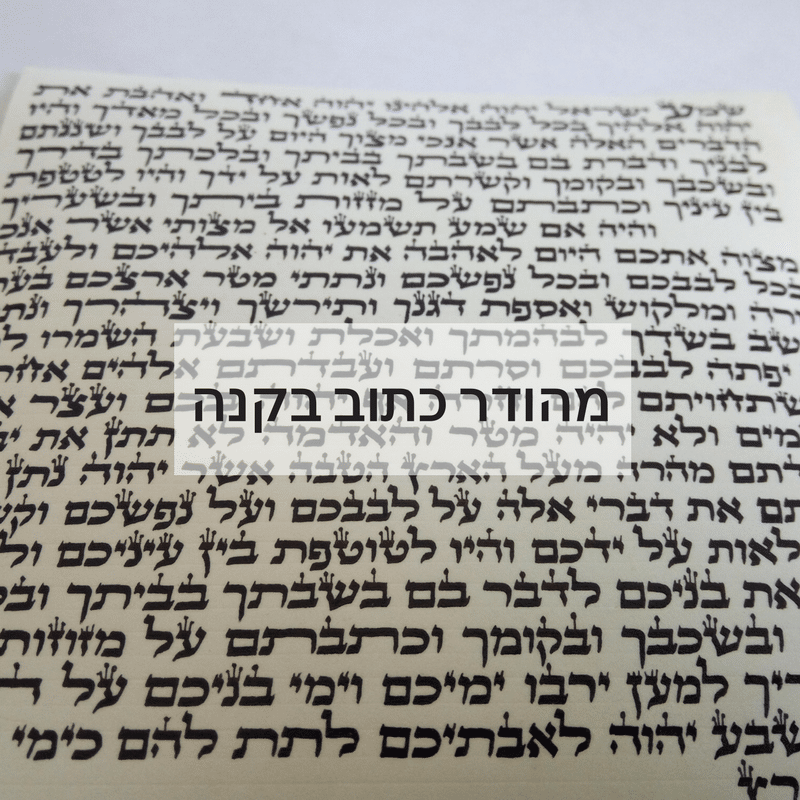 שמע ישראל יהוה אלהינו יהוה אחד ואהבת את
יהוה אלהיך בכל לבבך ובכל נפשך ובכל מאדך והיו
הדברים האלה אשר אנכי מצוך היום על לבבך ושננתם
לבניך ודברת בם בשבתך בביתך ובלכתך בדרך
ובשכבך ובקומך וקשרתם לאות על ידך והיו לטטפת
בין עיניך וכתבתם על מזזות ביתך ובשעריך
והיה אם שמע תשמעו אל מצותי אשר אנכ
מצוה אתכם היום לאהבה את יהוה אלהיכם ולעבד
בכל לבבכם ובכל נפשכם ונתתי מטר ארצכם בעת
ירה ומלקוש ואספת דגנך ותירשך ויצהרך ונת
שב בשדך לבהמתך ואכלת ושבעת השמרו ל
יפתה לבבכם וסרתם ועבדתם אלהים אחר
שתחויתם ועצר א
מהודר כתוב בקנה
מים ולא יהיה מטר והאדמה לא תתן את יב
דתם מהרה מעל הארץ הטבה אשר יהוה נתן
תם את דברי אלה על לבבכם ועל נפשכם וקש
לאות על ידכם והיו לטוטפת בין עיניכם ול
את בניכם לדבר בם בשבתך בביתך ובל
ובשכבך ובקומך וכתבתם על מזוזות
ריך למען ירבו ימיכם וימי בניכם על
שבע יהוה לאבתיכם לתת להם כימי
רץ